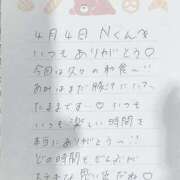 4月4日 Nくんを
いつもありがとう♡
今回は久々の和食〜♡
あれは豚汁に
たまきです♡ いつも
いつも楽しい時間を
本当にありがとう〜♡
どの時間もぜんぶが
な思い出だね♡